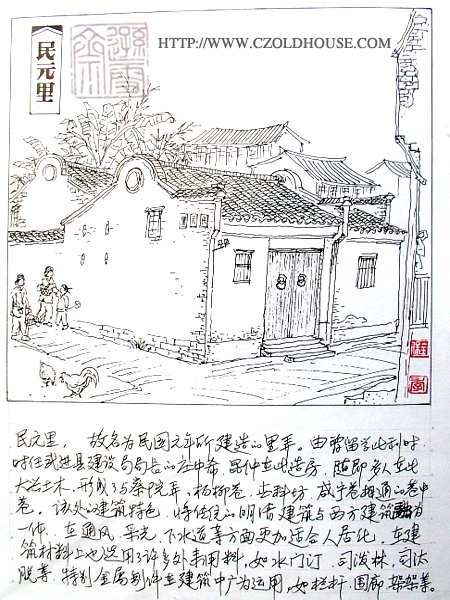 民元里
HTTP://WWW.CZOLDHOUSE.COM
民元里， 故名为民国元年所建造的里弄。由曾留学比利时
时任武进县建设局局长的庄中希 在此造房，随即多人在此
大兴土木，形成了与察院弄、杨柳巷、齿科坊、咸宁巷相通的巷中
巷。该处的建筑特色，将传统的明清建筑与西方建筑融为
一体，在通风、采光、下水道等方面更加适合人居化，在建
筑材料上也选用了许多外来用料，如水门汀、司泼林、司汰
脱等。特别金属制件在建筑中广为运用，如栏杆、围廊、架等。